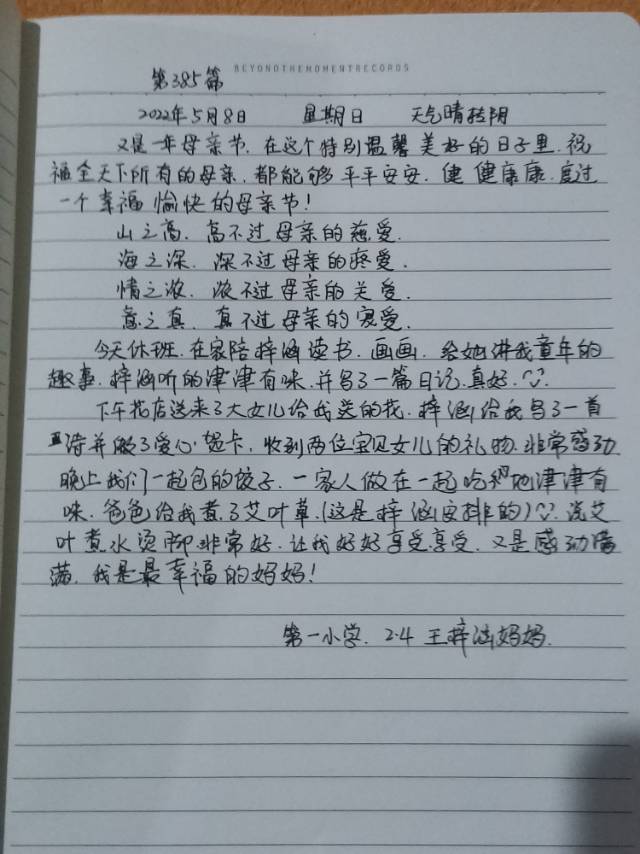 BEYONDTHEMOMENTRECORDS
第385篇
2022年5月8日 星期日 天气晴转阴
又是一年母亲节,在这个特别温馨美好的日子里,祝
福全天下所有的母亲,都能够平平安安,健健康康,度过
一个幸福愉快的母亲节!
山之高,高不过母亲的慈爱.
海之深,深不过母亲的疼爱.
情之浓,浓不过母亲的关爱.
意之真,真不过母亲的宠爱.
今天休班,在家陪梓涵读书,画画,给她讲我童年的
趣事,梓涵听的津津有味,并写了一篇日记,真好.
下午花店送来了大女儿给我送的花,梓涵给我写了一首
诗并做了爱心贺卡,收到两位宝贝女儿的礼物,非常感动
晚上我们一起包的饺子,一家人做在一起吃的津津有
味,爸爸给我煮了艾叶草,(这是梓涵安排的)洗艾
叶煮水烫脚,非常好,让我好好享受享受,又是感动满
满,我是最幸福的妈妈!
第一小学,2.4 王梓涵妈妈.